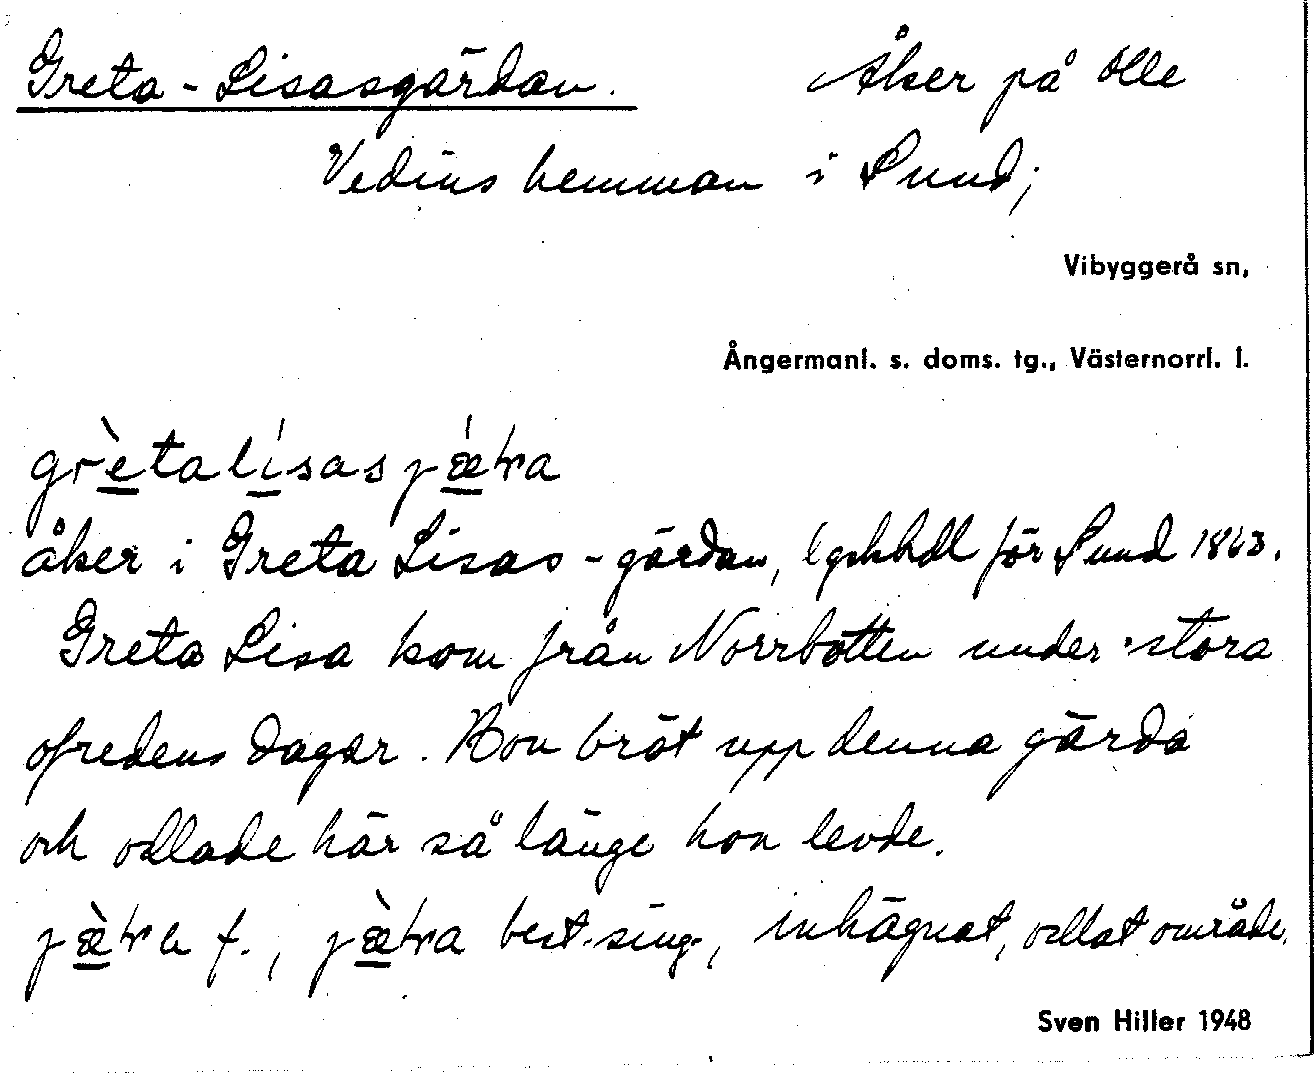 Greta-Lisasgärdan. Åker på Olle
Vedins hemman i Sund;
Vibyggerå sn,
Ångermanl. s. doms. tg., Västernorrl. l.
åker i Greta Lisas-gärdan, lgskhdl för Sund 1863.
Greta Lisa kom från Norrbotten under stora
ofredens dagar. Hon bröt upp denna gärda
och odlade här så länge hon levde.
f., best. sing., inhägnat, odlat område.
Sven Hiller 1948